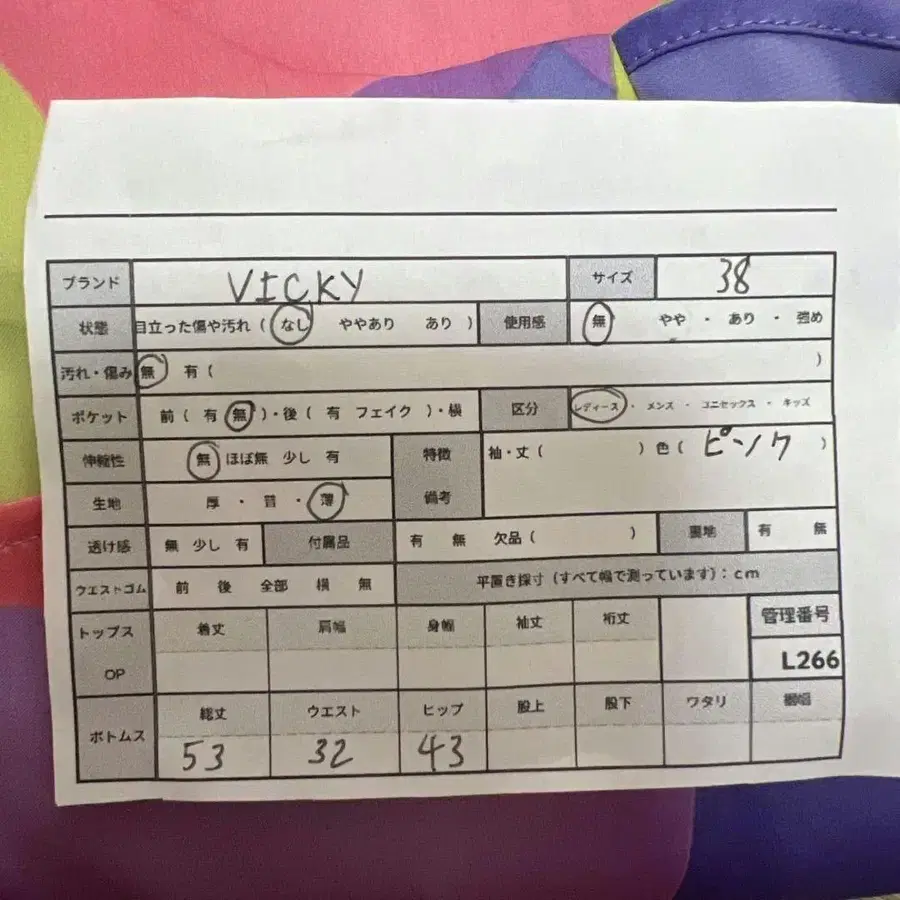 ブランド VICKY サイズ 38
状態 目立った傷や汚れ ( なし ややあり あり ) 使用感 無 やや ・ あり ・ 強め
汚れ・傷み 無 有 ( )
ポケット 前 ( 有 無 )・後 ( 有 フェイク )・横 区分 レディース ・ メンズ ・ ユニセックス ・ キッズ
伸縮性 無 ほぼ無 少し 有 特徴 袖・丈 ( ) 色 ( ピンク )
生地 厚 ・ 普 ・ 薄 備考
透け感 無 少し 有 付属品 有 無 欠品 ( ) 裏地 有 無
ウエストゴム 前 後 全部 横 無 平置き採寸 (すべて幅で測っています) : cm
トップス 着丈 肩幅 身幅 袖丈 裄丈 管理番号
OP L266
ボトムス 総丈 ウエスト ヒップ 股上 股下 ワタリ 裾幅
53 32 43